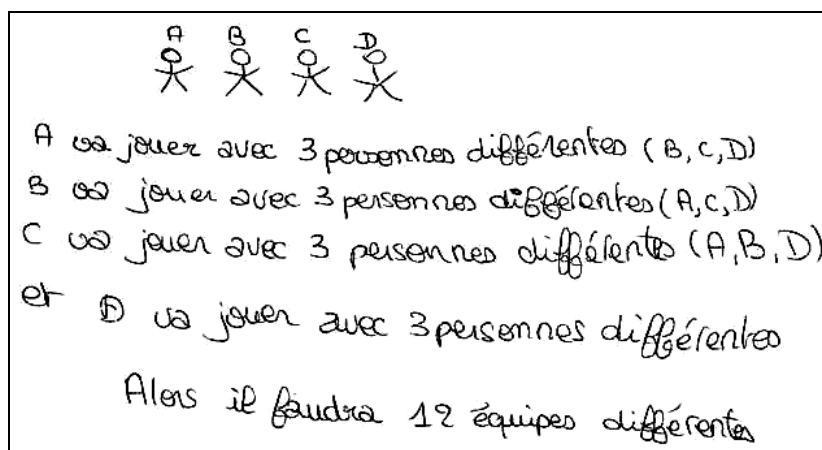 A B C D
A va jouer avec 3 personnes différentes (B, C, D)
B va jouer avec 3 personnes différentes (A, C, D)
C va jouer avec 3 personnes différents (A, B, D)
et D va jouer avec 3 personnes différentes
Alors il faudra 12 équipes différents